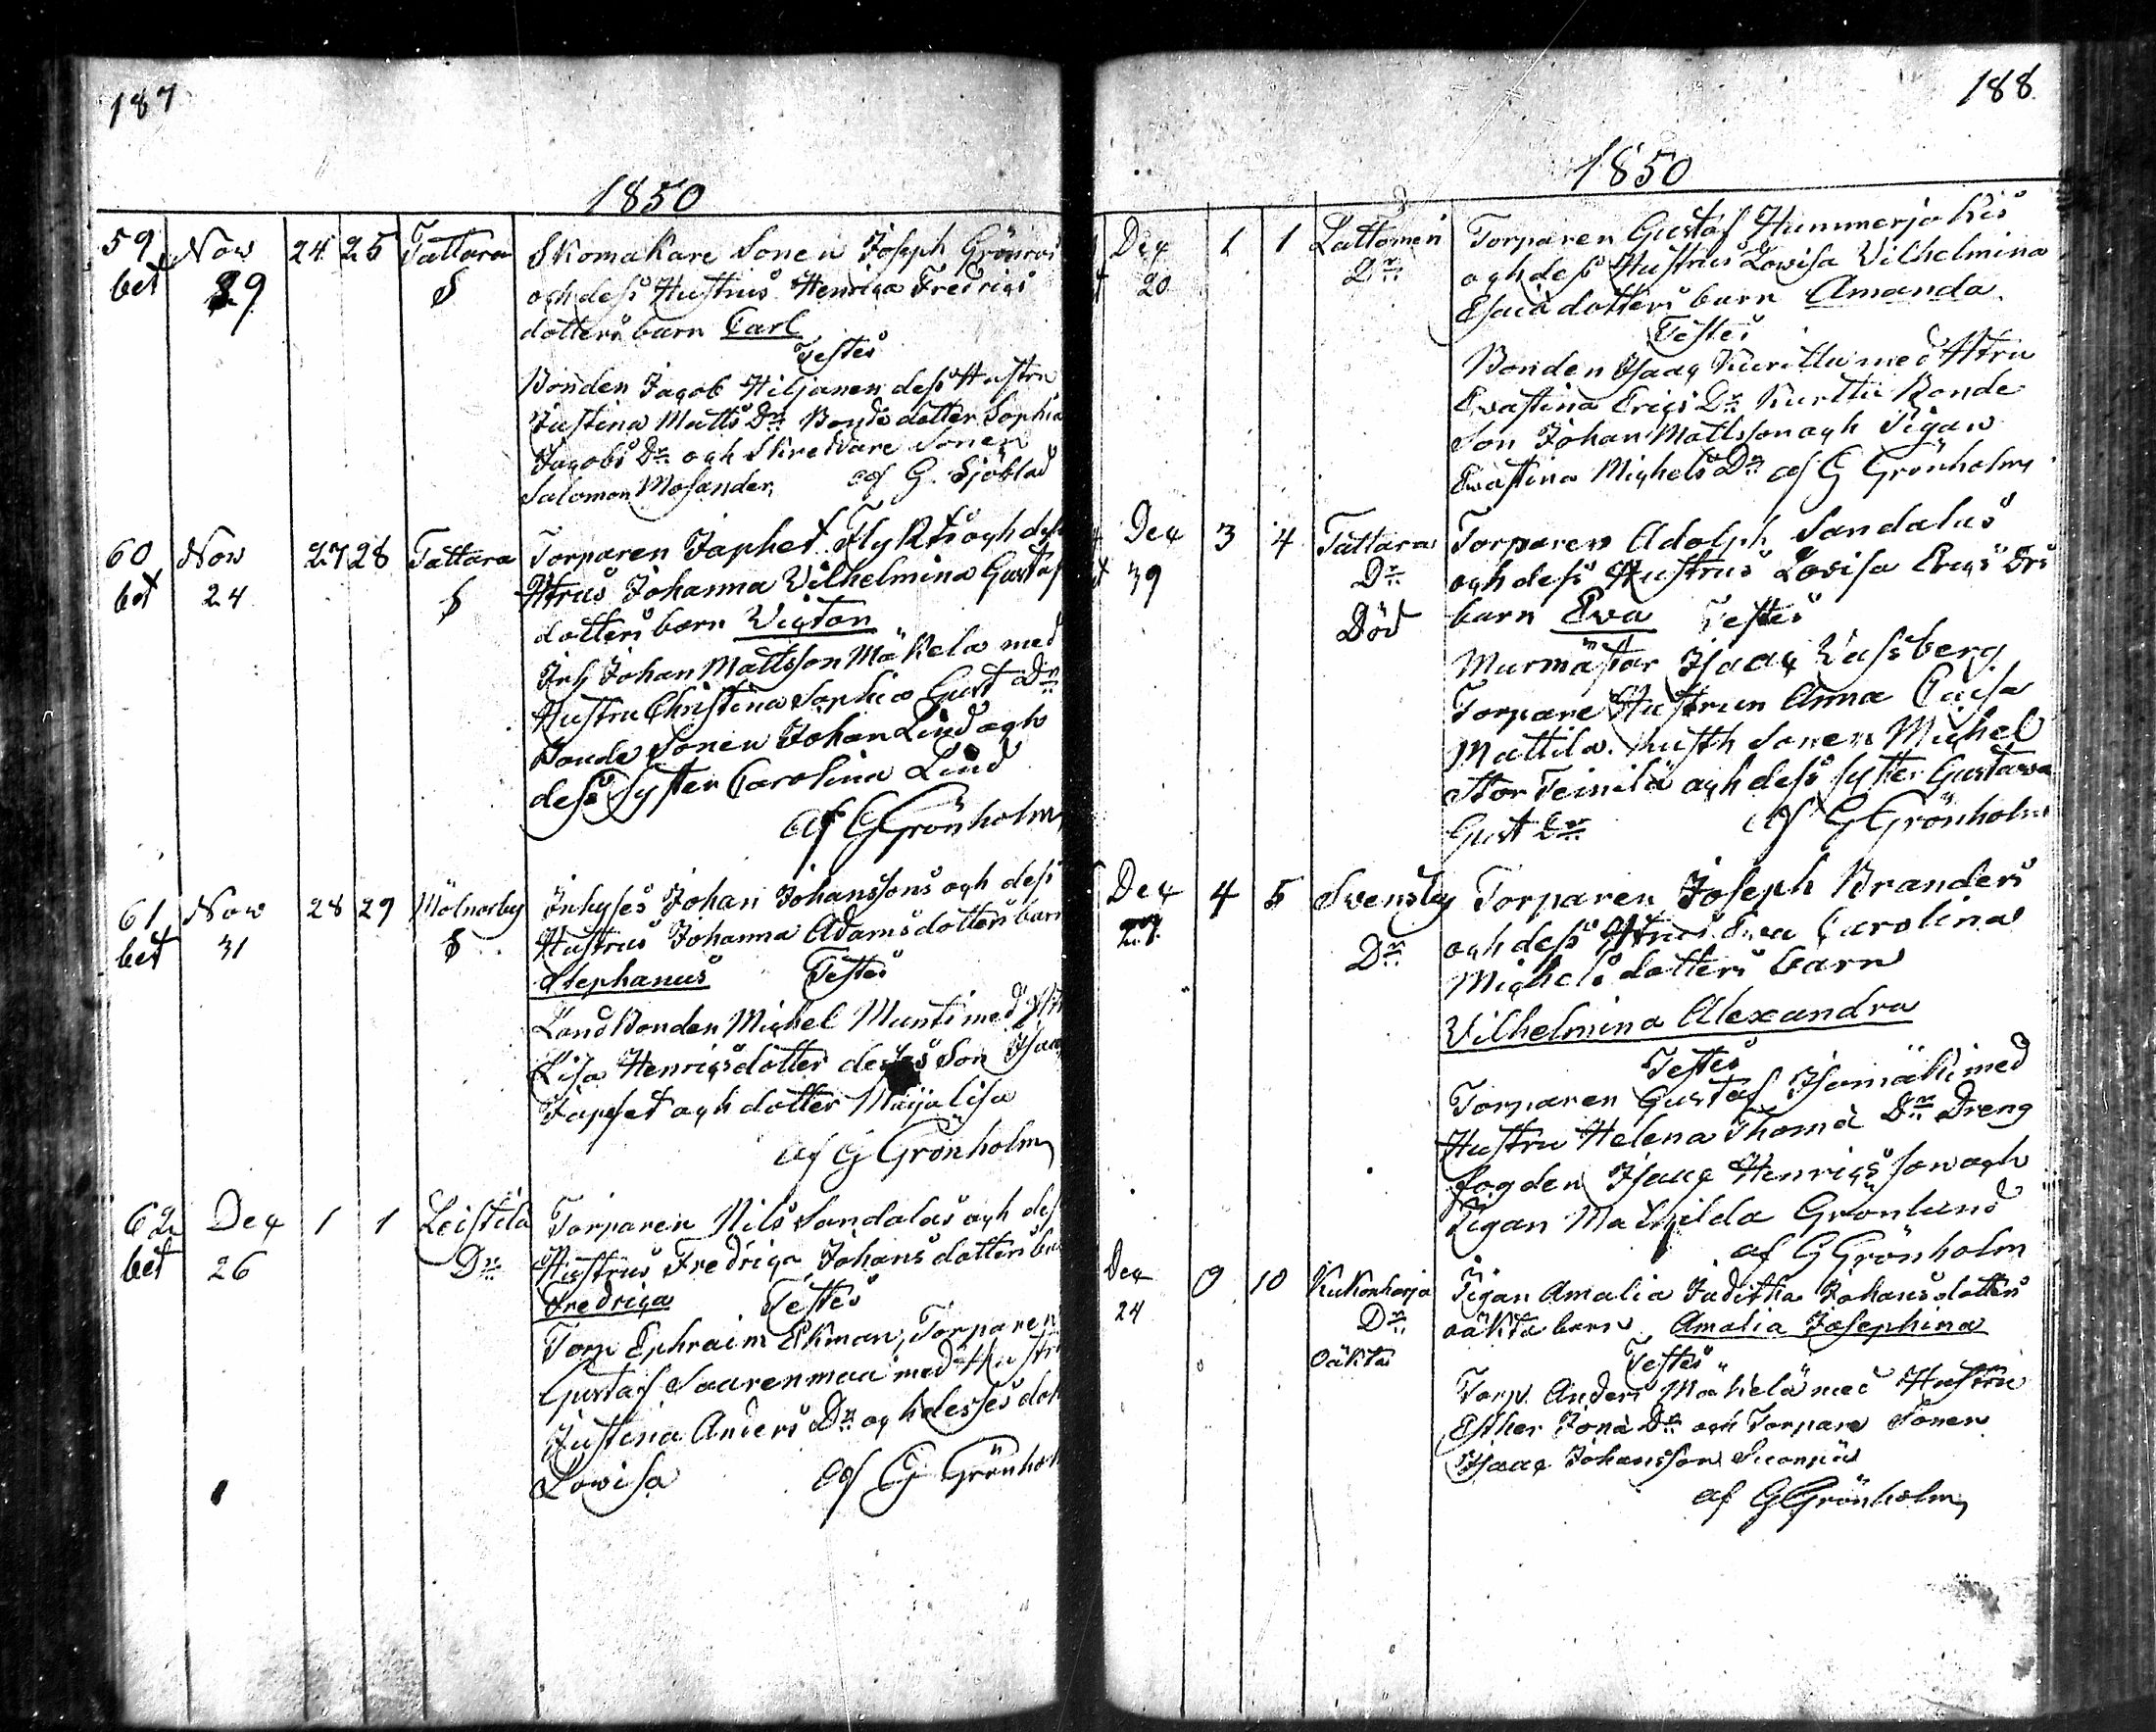 187
1850
59 Nov 24 25 Tattara Skomakare Sonen Joseph
bet 29 S och dess Hustrus Henrica Fredrics
dotters barn Carl
Testes
Bonden Jacob Hiljanen dess Hustru
Justina Matts Dr Bonde dotter Sophia
Jacobs Dr och Skreddare Sonen
Salomon Mosander af G. Sjöblad
60 Nov 27 28 Tattara Torparen Japhet Flykts och dess
bet 24 S Htrus Johanna Vilhelmina Gustaf
dotters barn Victor
Johan Mattsson Mäkelä med
Hustru Christina Sophia Gust Dr
Bonde Sonen Johan Lind och
dess Syster Carolina Lind
af G Grönholm
61 Nov 28 29 Mölnorby Inhyses Johan Johanssons och dess
bet 31 S Hustrus Johanna Adams dotters barn
Stephanus Testes
Landbonden Michel Munti med
Lisa Henricsdotter deras Son
Japhet och dotter Maja Lisa
af G Grönholm
62 Dec 1 1 Leistilä Torparen Nils Sandalas och dess
bet 26 Dr Hustrus Fredrica Johans dotters
Fredrica Testes
Torp Ephraim Ekman, Torparen
Gustaf Saarenmaa med Hustru
Justina Anders Dr och desses
Lovisa af G Grönholm
188
1850
Dec 1 1 Lattomeri Torparen Gustaf Hummerjokis
20 Dr och dess Hustrus Lovisa Vilhelmina
Esaias dotters barn Amanda
Testes
Bonden Isaac med Htru
Evastina Erics Dr Kurttu Bonde
Son Johan Mattsson och Pigan
Evastina Michels Dr af G Grönholm
Dec 3 4 Tattara Torparen Adolph Sandalus
39 Dr och dess Hustrus Lovisa Erics Drs
Död barn Eva Testes
Murmästar Isaac Vassberg
Torpare Hustrun Anna Caisa
Mattila. Rusth Sonen Michel
Stor Teinilä och dess syster Gustava
Gust Dr af G Grönholm
Dec 4 5 Svensby Torparen Joseph Branders
27 Dr och dess Htrus Eva Carolina
Michels dotters barn
Vilhelmina Alexandra
Testes
Torparen Gustaf Isomäki med
Hustru Helena Thoma Dr Dreng
fogden Isaac Henricsson och
Pigan Mathilda Grönlund
af G Grönholm
Dec 9 10 Kukonharja Pigan Amalia Juditha Johansdotters
24 Dr oäkta barn Amalia Josephina
oäkta Testes
Torp. Anders Mäkelä med Hustru
Esther Jona Dr och Torpare Sonen
Isaac Johansson
af G Grönholm